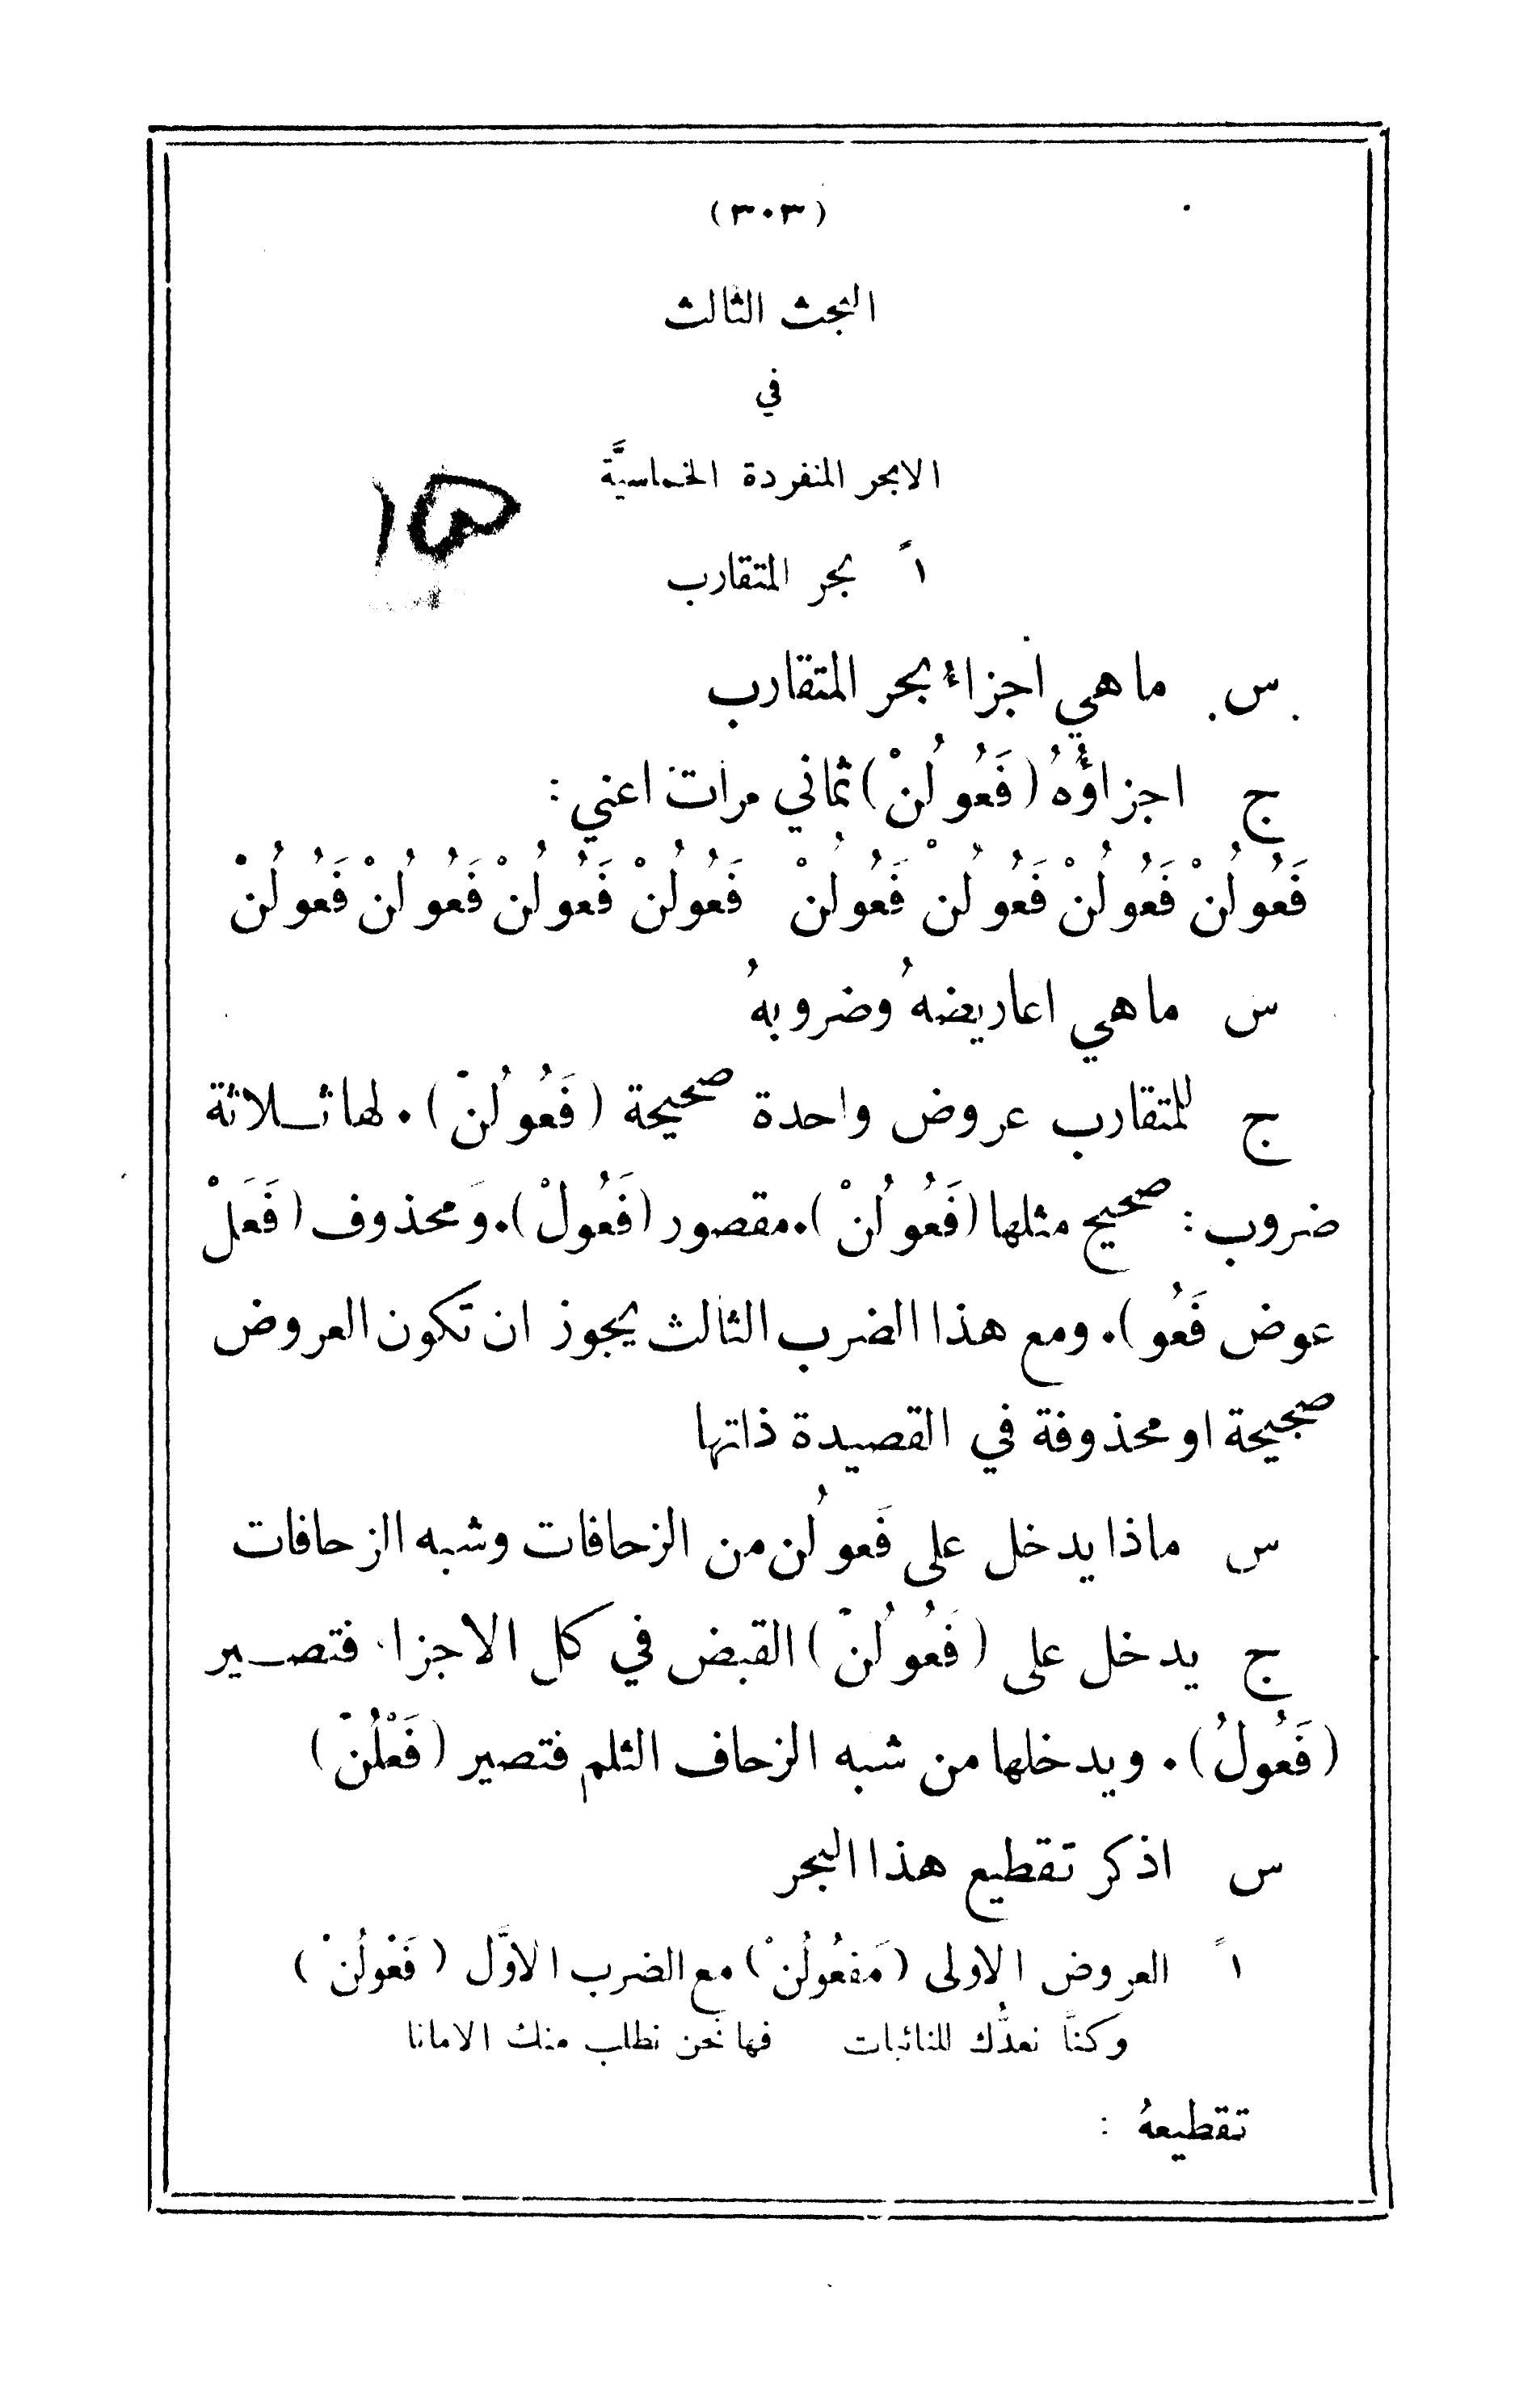 (٣٠٣)
البحث الثالث
في
الابحر المنفردة الخماسيَّة
١ً بحر المتقارب
س ما هي اجزاءُ بحر المتقارب
ج اجزاؤُهُ (فَعُولُنْ) ثماني مرات اعني :
فَعُولُنْ فَعُولُنْ فَعُولُنْ فَعُولُنْ فَعُولُنْ فَعُولُنْ فَعُولُنْ فَعُولُنْ
س ما هي اعاريضهُ وضروبهُ
ج للمتقارب عروض واحدة صحيحة (فَعُولُنْ). لها ثـلاثة
ضروب : صحيح مثلها (فَعُولُنْ). مقصور (فَعُولْ). وَمحذوف (فَعَلْ
عوض فَعُو). ومع هذا الضرب الثالث يجوز ان تكون العروض
صحيحة او محذوفة في القصيدة ذاتها
س ماذا يدخل على فَعولُن من الزحافات وشبه الزحافات
ج يدخل على (فَعُولُنْ) القبض في كل الاجزاء فتصـير
(فَعُولُ). ويدخلها من شبه الزحاف الثلم فتصير (فَعْلُنْ)
س اذكر تقطيع هذا البحر
١ً العروض الاولى (مَفعُولُنْ) مع الضرب الاوَّل (فَعْولُنْ)
وَكنَّا نعدُّك للنائبات فها نحن نطلب منك الامانا
تقطيعهُ :